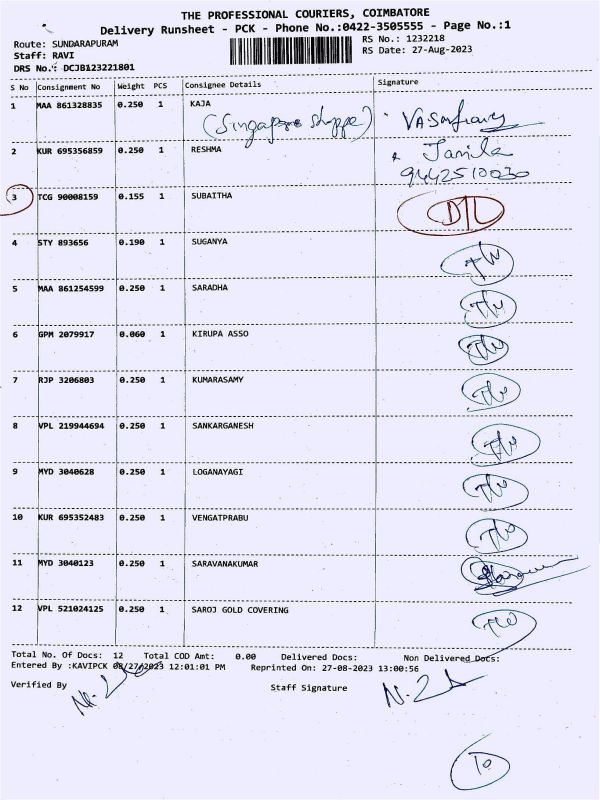 THE PROFESSIONAL COURIERS, COIMBATORE
Delivery Runsheet - PCK - Phone No.:0422-3505555 - Page No.:1
Route: SUNDARAPURAM
RS No.: 1232218
Staff: RAVI
RS Date: 27-Aug-2023
DRS No.: DCJB123221801
S No Consignment No Weight PCS Consignee Details Signature
1 MAA 861328835 0.250 1 KAJA
(Singapore shoppe)
2 KUR 695356859 0.250 1 RESHMA Jamila
9442510030
3 TCG 90008159 0.155 1 SUBAITHA
4 STY 893656 0.190 1 SUGANYA
5 MAA 861254599 0.250 1 SARADHA
6 GPM 2079917 0.060 1 KIRUPA ASSO
7 RJP 3206803 0.250 1 KUMARASAMY
8 VPL 219944694 0.250 1 SANKARGANESH
9 MYD 3040628 0.250 1 LOGANAYAGI
10 KUR 695352483 0.250 1 VENGATPRABU
11 MYD 3040123 0.250 1 SARAVANAKUMAR
12 VPL 521024125 0.250 1 SAROJ GOLD COVERING
Total No. Of Docs: 12 Total COD Amt: 0.00 Delivered Docs: Non Delivered Docs:
Entered By :KAVIPCK 08/27/2023 12:01:01 PM Reprinted On: 27-08-2023 13:00:56
Verified By Staff Signature